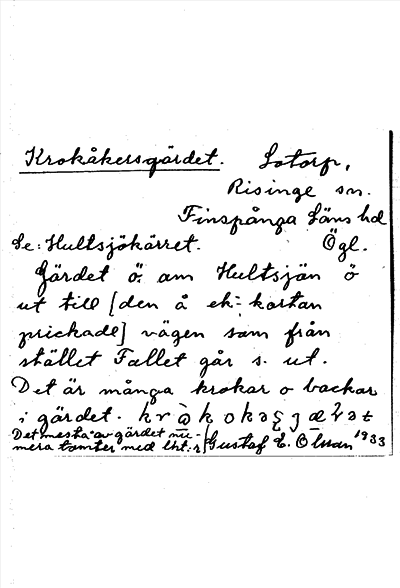 Krokåkersgärdet. Lotorp,
Risinge sn.
Finspånga Läns hd
Se: Hultsjökärret. Ögl.
Gärdet ö. om Hultsjön ö
ut till [den å ek: kartan
prickade] vägen som från
stället Fallet går s. ut.
Det är många krokar o backar
i gärdet.
Det mesta av gärdet nu-
mera tomter med lht:r Gustaf E. Olsson 1933